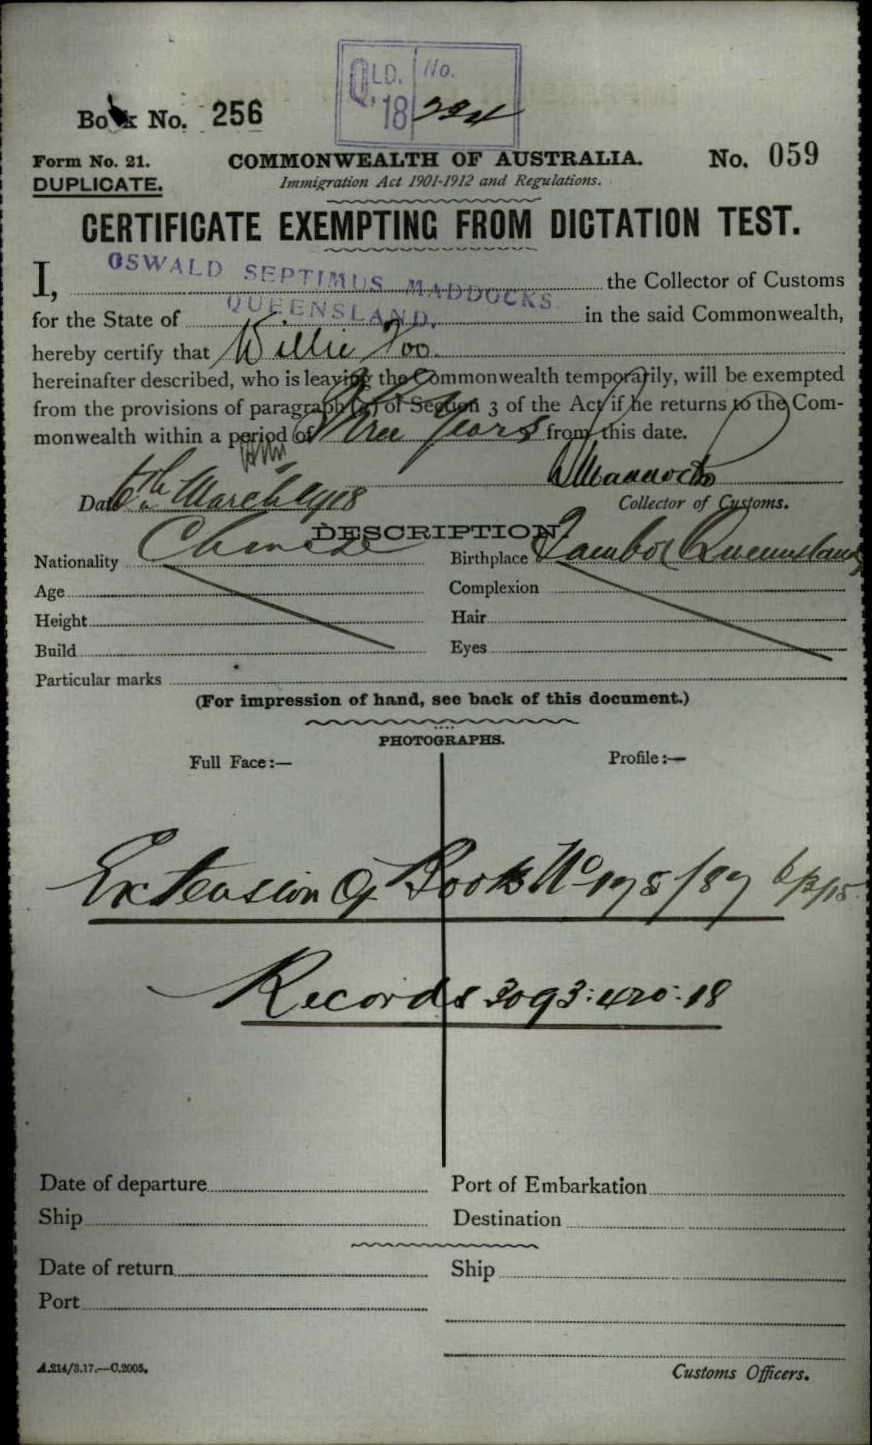 QLD. No.
'18
Book No. 256
Form No. 21. COMMONWEALTH OF AUSTRALIA. No. 059
DUPLICATE. Immigration Act 1901-1912 and Regulations.
CERTIFICATE EXEMPTING FROM DICTATION TEST.
I, OSWALD SEPTIMUS MADDOCKS the Collector of Customs
for the State of QUEENSLAND. in the said Commonwealth,
hereby certify that Willie Foo
hereinafter described, who is leaving the Commonwealth temporarily, will be exempted
from the provisions of paragraph (a) of Section 3 of the Act if he returns to the Com-
monwealth within a period of Three Years from this date.
Maddocks
Date 6th March 1918 Collector of Customs.
DESCRIPTION
Nationality Chinese Birthplace Tambo Queensland
Age Complexion
Height Hair
Build Eyes
Particular marks
(For impression of hand, see back of this document.)
PHOTOGRAPHS.
Full Face:— Profile:—
Extension of Book No 178/87 6/3/15
Records 3093:420:18
Date of departure Port of Embarkation
Ship Destination
Date of return Ship
Port
A.214/3.17.—C.2005. Customs Officers.